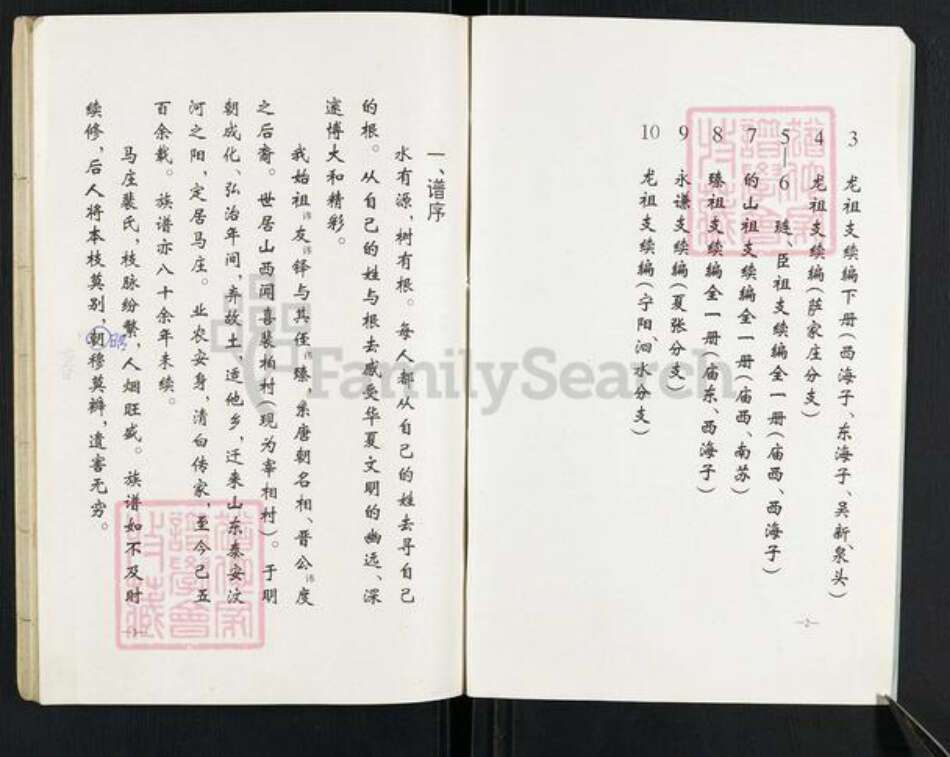 3 龙祖支续编下册(西海子、东海子、吴新、泉头)
4 龙祖支续编(萨家庄分支)
5—6 琏、臣祖支续编全一册(庙西、西海子)
7 的山祖支续编全一册(庙西、南苏)
8 臻祖支续编全一册(庙东、西海子)
9 永谦支续编(夏张分支)
10 龙祖支续编(宁阳、泗水分支)
—2—
一、谱序
水有源,树有根。每人都从自己的姓去寻自己
的根。从自己的姓与根去感受华夏文明的幽远、深
邃博大和精彩。
我始祖讳友讳铎与其侄讳臻 系唐朝名相、晋公讳度
之后裔。世居山西闻喜裴柏村(现为宰相村)。于明
朝成化、弘治年间,弃故土,适他乡,迁来山东泰安汶
河之阳,定居马庄。业农安身,清白传家,至今已五
百余载。族谱亦八十余年未续。
马庄裴氏,枝脉纷繁,人烟旺盛。族谱如不及时
续修,后人将本枝莫别,朝穆莫辨,遗害无穷。
昭
—3—
FamilySearch